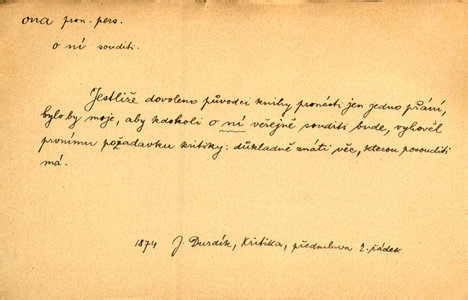 ona pron. pers.
o ní souditi.
Jestliže dovoleno původci knihy pronésti jen jedno přání,
bylo by moje, aby kdokoli o ní veřejně souditi bude, vyhověl
prvnímu požadavku kritiky: důkladně znáti věc, kterou posouditi
má.
1874 J. Durdík, Kritika, předmluva 2. řádek.